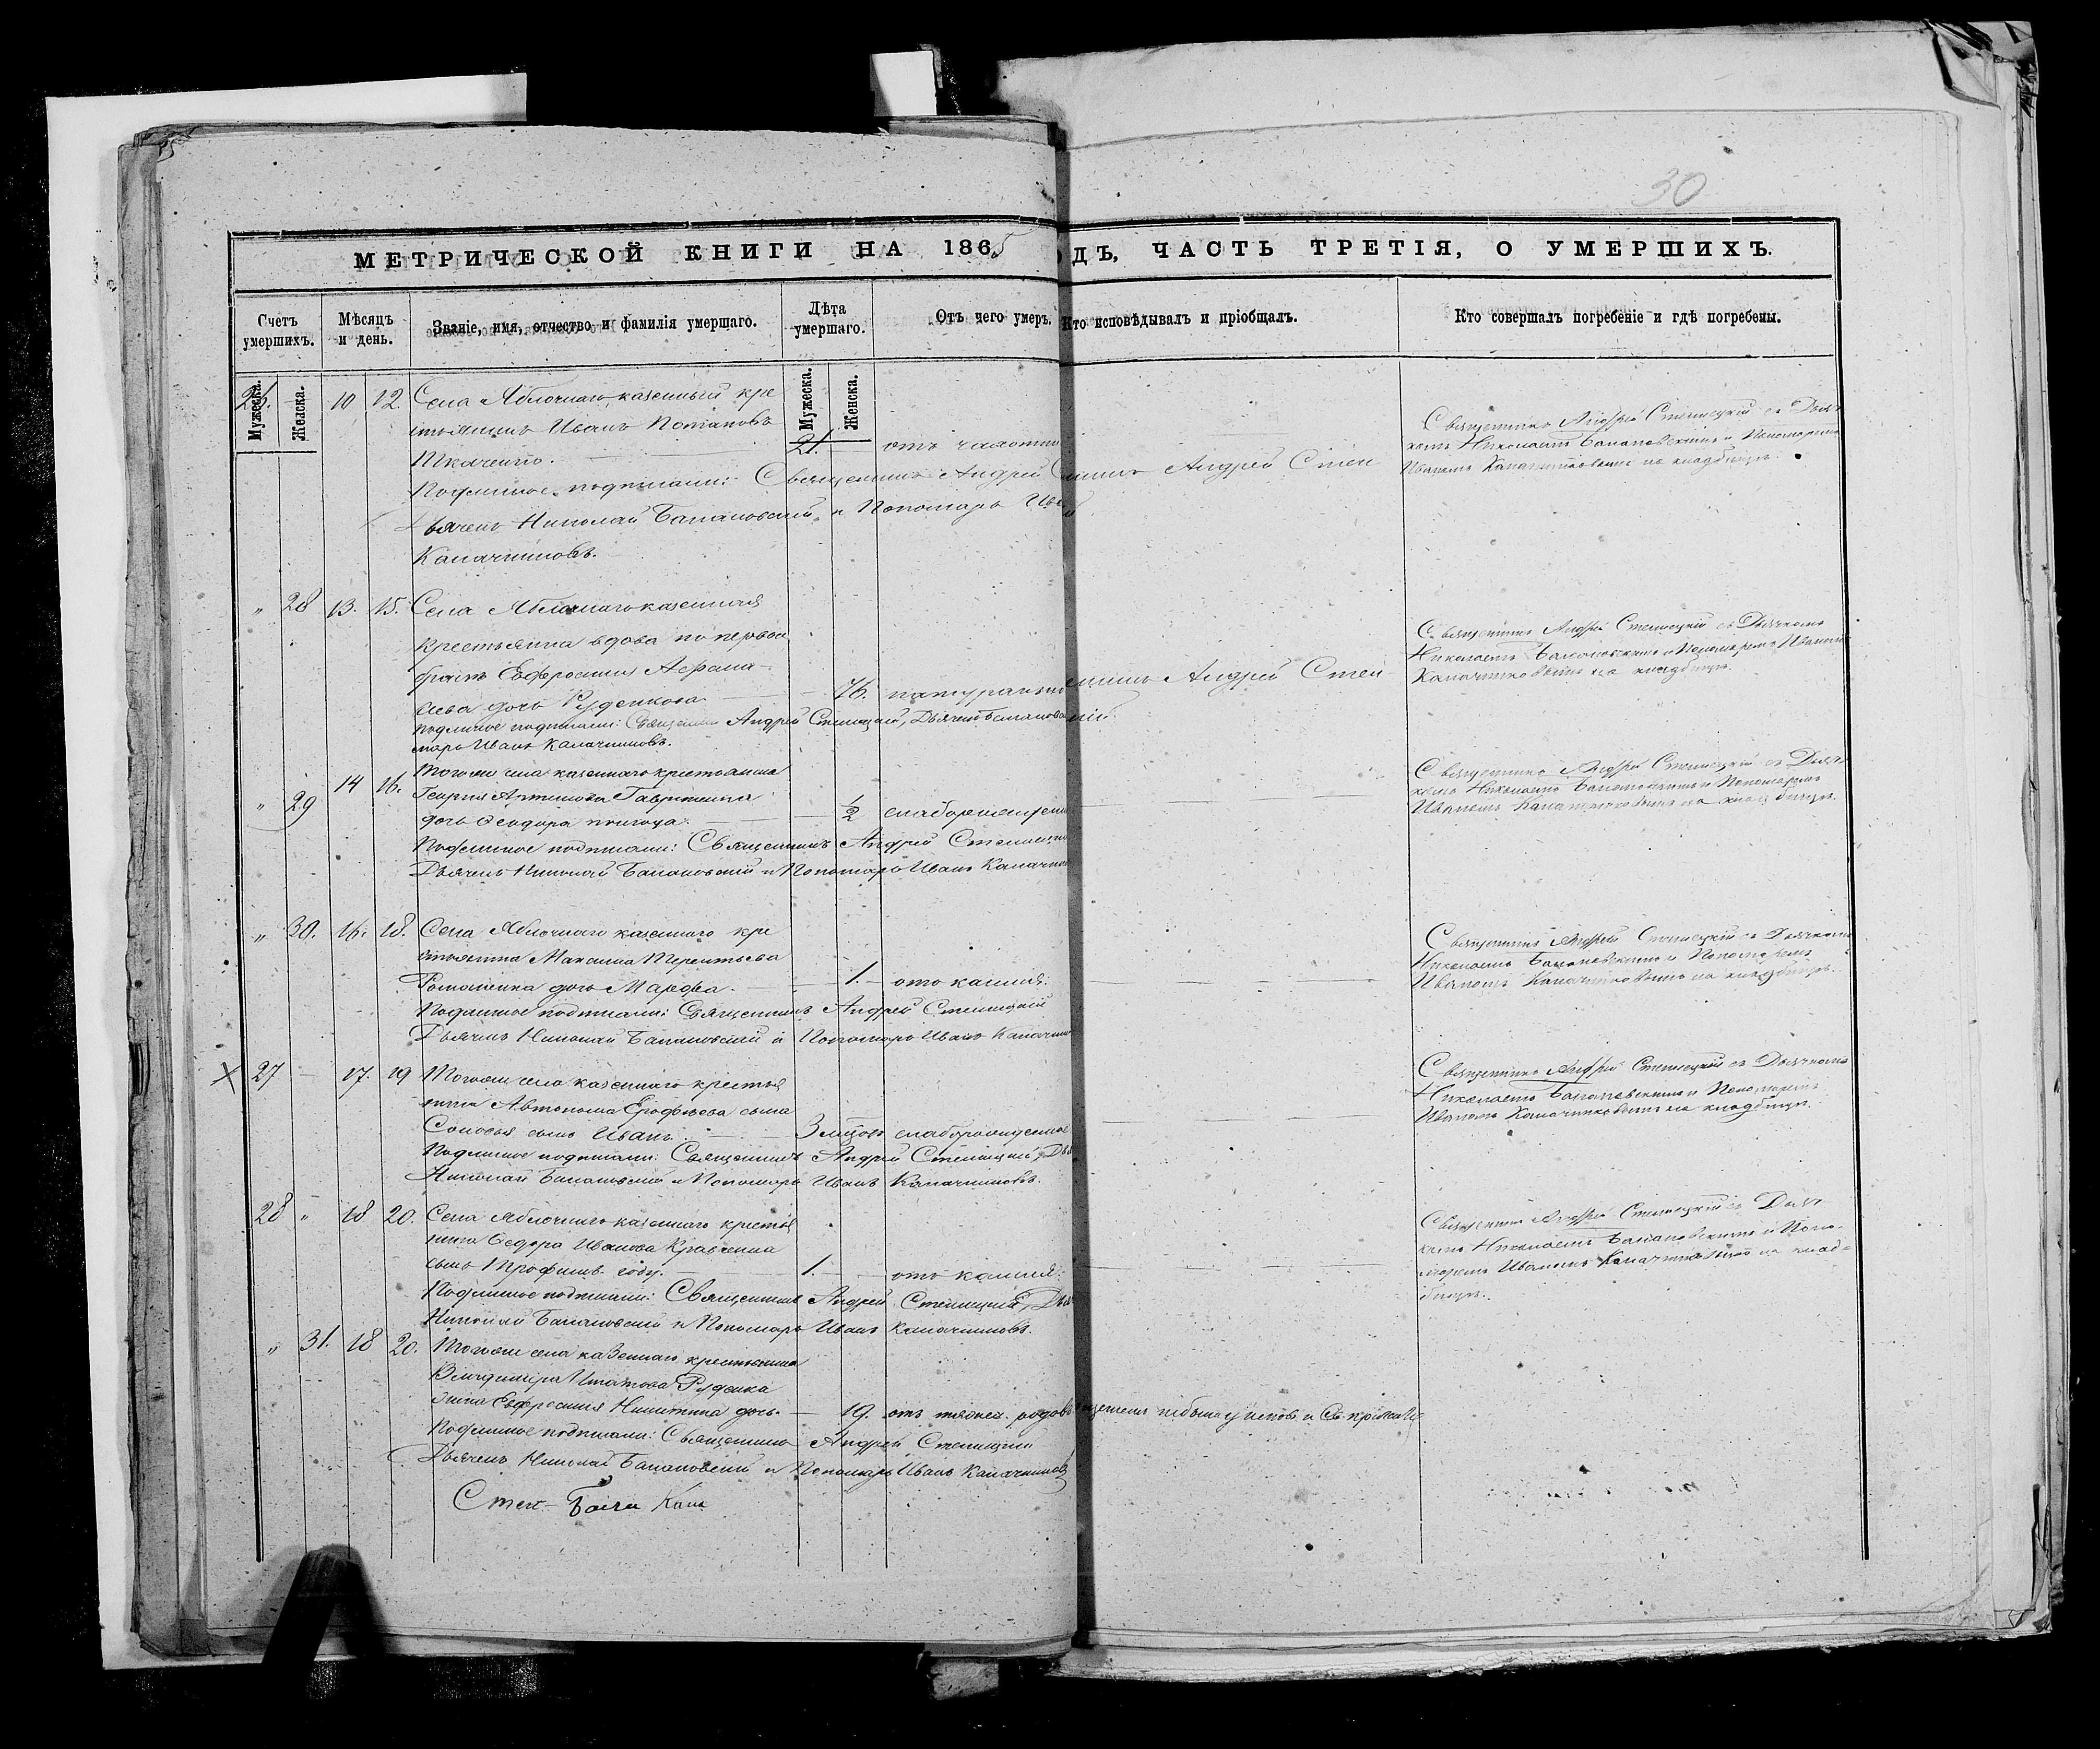 30
МЕТРИЧЕСКОЙ КНИГИ НА 1865 ОДЪ, ЧАСТЬ ТРЕТІЯ, О УМЕРШИХЪ.
Счетъ умершихъ.
Мѣсяцъ и день.
Званіе, имя, отчество и фамилія умершаго.
Лѣта умершаго.
Отъ чего умеръ.
Кто исповѣдывалъ и пріобщалъ.
Кто совершалъ погребеніе и гдѣ погребены.
Мужеска.
Женска.
Мужеска.
Женска.
26. — 10 12. Села Яблочнаго казенный кре
стьянинъ Иванъ Потаповъ
Ткаченко. — 21. отъ чахотки
Подлинное подписали: Священникъ Андрей
нникъ Андрей Стен
Дьячекъ Николай Балановскій и Пономарь Ив
Калачниковъ.
Священникъ Андрей Стенецкій съ Дьяч
комъ Николаемъ Балановскимъ и Пономаремъ
Иваномъ Калачниковымъ на кладбищѣ.
„ 28 13. 15. Села Яблочнаго казенная
крестьянка вдова по первом
бракѣ Евфросинія Афана-
сьева дочь Руденкова — 76. натурально
Андрей Стен
Подлинное подписали: Священникъ Андрей Стенецкій, Дьячекъ Балановскій
марь Иванъ Калачниковъ.
Священникъ Андрей Стенецкій съ Дьячкомъ
Николаемъ Балановскимъ и Пономаремъ Иваномъ
Калачниковымъ на кладбищѣ.
„ 29 14 16. Тогоже села казеннаго крестьянина
Георгія Артемова Гавришенка
дочь Ѳеодора полгода. — 1/2 слаборожденн
Подлинное подписали: Священникъ Андрей Стенецкі
Дьячекъ Николай Балановскій и Пономарь Иванъ Калачни
Священникъ Андрей Стенецкій съ Дьяч
комъ Николаемъ Балановскимъ и Пономаремъ
Иваномъ Калачниковымъ на кладбищѣ.
„ 30. 16. 18. Села Яблочнаго казеннаго кре
стьянина Максима Терентьева
Романенка дочь Марфа. — 1. отъ кашля.
Подлинное подписали: Священникъ Андрей Стенецкій
Дьячекъ Николай Балановскій и Пономарь Иванъ Калачни
Священникъ Андрей Стенецкій съ Дьячкомъ
Николаемъ Балановскимъ и Пономаремъ
Иваномъ Калачниковымъ на кладбищѣ.
× 27 — 17. 19 Тогоже села казеннаго крестья
нина Автонома Ерофѣева сына
сынъ Иванъ. — слаборожденное
Подлинное подписали: Священникъ Андрей Стенецкій, Дья
Николай Балановскій и Пономарь Иванъ Калачниковъ.
Священникъ Андрей Стенецкій съ Дьячкомъ
Николаемъ Балановскимъ и Пономаремъ
Иваномъ Калачниковымъ на кладбищѣ.
28 „ 18 20. Села Яблочнаго казеннаго крестья
нина Ѳедора Иванова Кравченка
сынъ Трофимъ году. — 1. отъ кашля.
Подлинное подписали: Священникъ Андрей Стенецкій, Дья
Николай Балановскій и Пономарь Иванъ Калачниковъ.
Священникъ Андрей Стенецкій съ Дьяч
комъ Николаемъ Балановскимъ и Поно-
маремъ Иваномъ Калачниковымъ на клад-
бищѣ.
„ 31. 18 20. Тогоже села казеннаго крестьянина
Владимира Игнатова Руденка
жена Евфросинія Никитина дочь. — 19. отъ тяжел. родовъ
Подлинное подписали: Священникъ Андрей Стенецкій
Дьячекъ Николай Балановскій и Пономарь Иванъ Калачников
Стен- Бала Кала